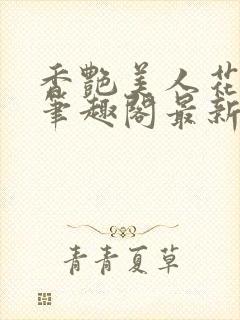 香艳美人花
笔趣阁最新
青青夏草